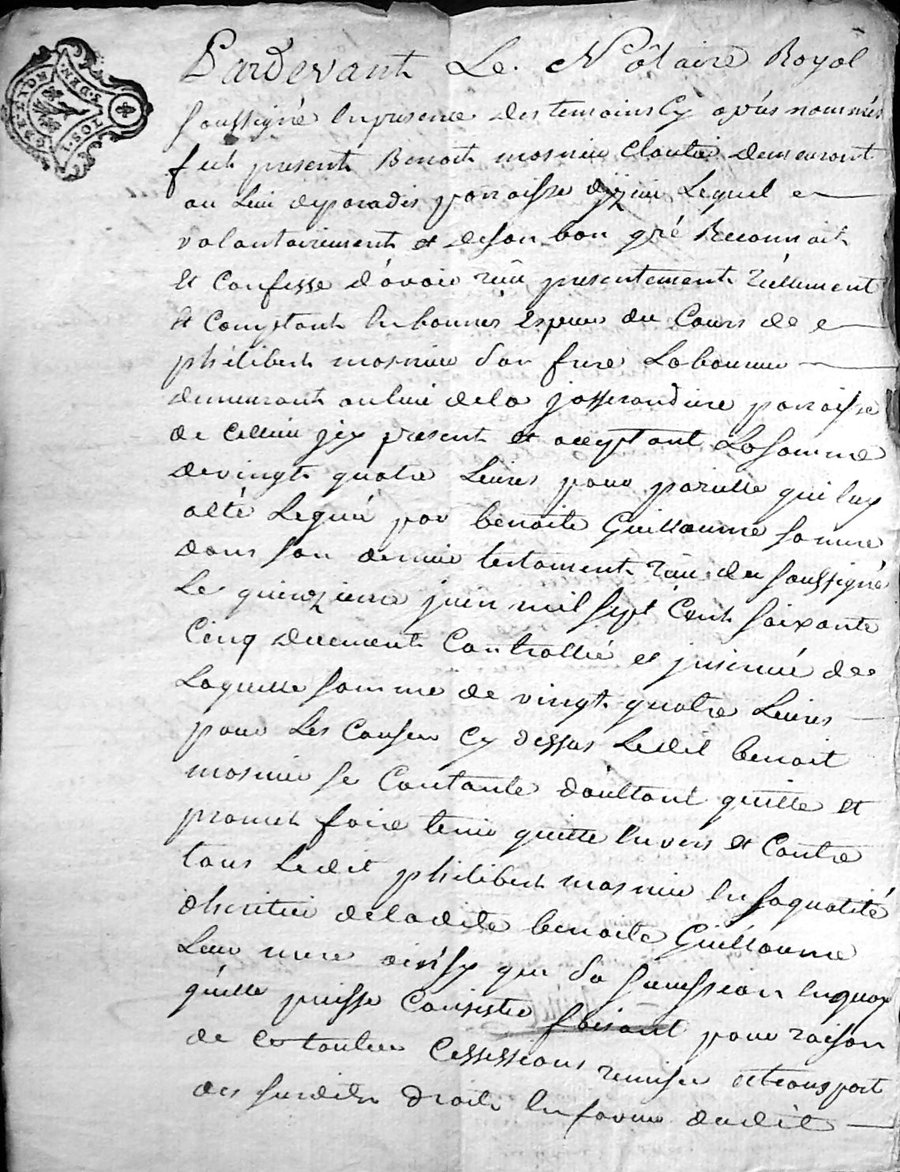 Pardevant Le Nôtaire Royol
soussigné En presence des temoins Cy après nommés
fut present Benoit mosnier Cloutier demeurant
au Lieu deparadis parroisse Lequel
volantairement et deson bon gré Reconnoit
Et Confesse d'avoir reçu presentement réellement
Et Comptant En bonnes Especes du Cours de
philibert mosnier son frere Laboureur
demeurant au lieu dela josserandiere parroisse
de Cellieu present et acceptant La somme
de vingt quatre Livres pour pareille qui luy
a été Legué par benoite Guillaume sa mere
dans son dernier testament reçu du soussigné
Le quinzieme juin mil sept Cent soixante
Cinq deuement Controllé et insinué de
Laquelle somme de vingt quatre Livres
pour Les Causes Cy dessus Ledit benoit
mosnier se Contante d'aultant quitte et
promet faire tenir quitte Envers Et Contre
tous Ledit philibert mosnier En saqualité
dheritier deladite benoite Guillaume
Leur mere ainsy que sa sucession En quoy
q'uelle puisse Consister faisant pour raison
de Ce toutes Cessessions remises et transport
des susdits droits En forme dudit